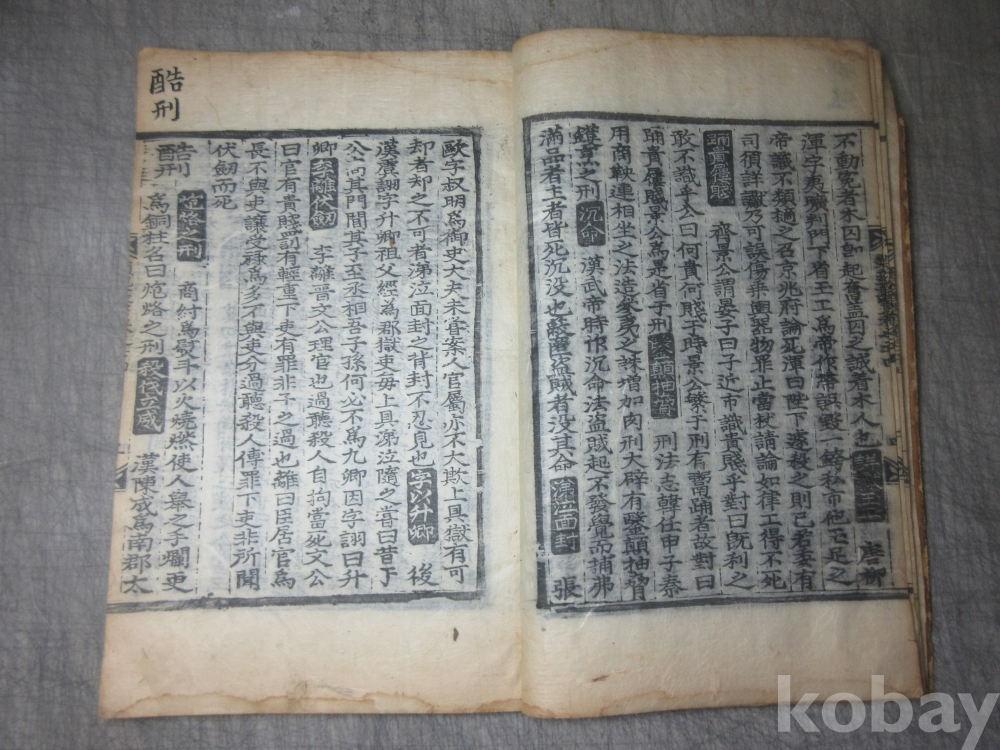 不動冤者木囚卽起奮蓋囚之誠着木人也 唐柳
渾字夷曠判門下省玉工爲帝作帶誤毀一銙私市他玉足之
帝識不須摘之召京兆府論死渾曰陛下遽殺之則已若委有
司須詳讞乃可誤傷乘輿器物罪止當杖請論如律工得不死
踊貴屨賤 齊景公謂晏子曰子近市識貴賤乎對曰旣利之
敢不識乎公曰何貴何賤于時景公繁于刑有鬻踊者故對曰
踊貴屨賤景公爲是省于刑 鑿顚抽脅 刑法志韓任申子秦
用商鞅連相坐之法造參夷之誅增加肉刑大辟有鑿顚抽脅
鑊烹之刑 沉命 漢武帝時作沉命法盜賊起不發覺而捕弗
滿品者主者皆死沉没也敢匿盜賊者没其命 涕泣面封 張
歐字叔明爲御史大夫未甞案人官屬亦不大欺上具獄有可
却者却之不可者涕泣面封之背封不忍見也 字以升卿 後
漢虞詡字升卿祖父經爲郡獄吏每上具涕泣隨之嘗曰昔于
公高其門閭其子至丞相吾子孫何必不爲九卿因字詡曰升
卿 李離伏劒 李離晉文公理官也過聽殺人自拘當死文公
曰官有貴賤罰有輕重下吏有罪非子之過也離曰臣居官爲
長不與吏讓受祿爲多不與吏分過聽殺人傳罪下吏非所聞
伏劒而死
酷刑
酷刑 炮烙之刑 商紂爲熨斗以火燒燃使人舉之手爛更
爲銅柱名曰炮烙之刑 殺伐立威 漢陳咸爲南郡太
kobay